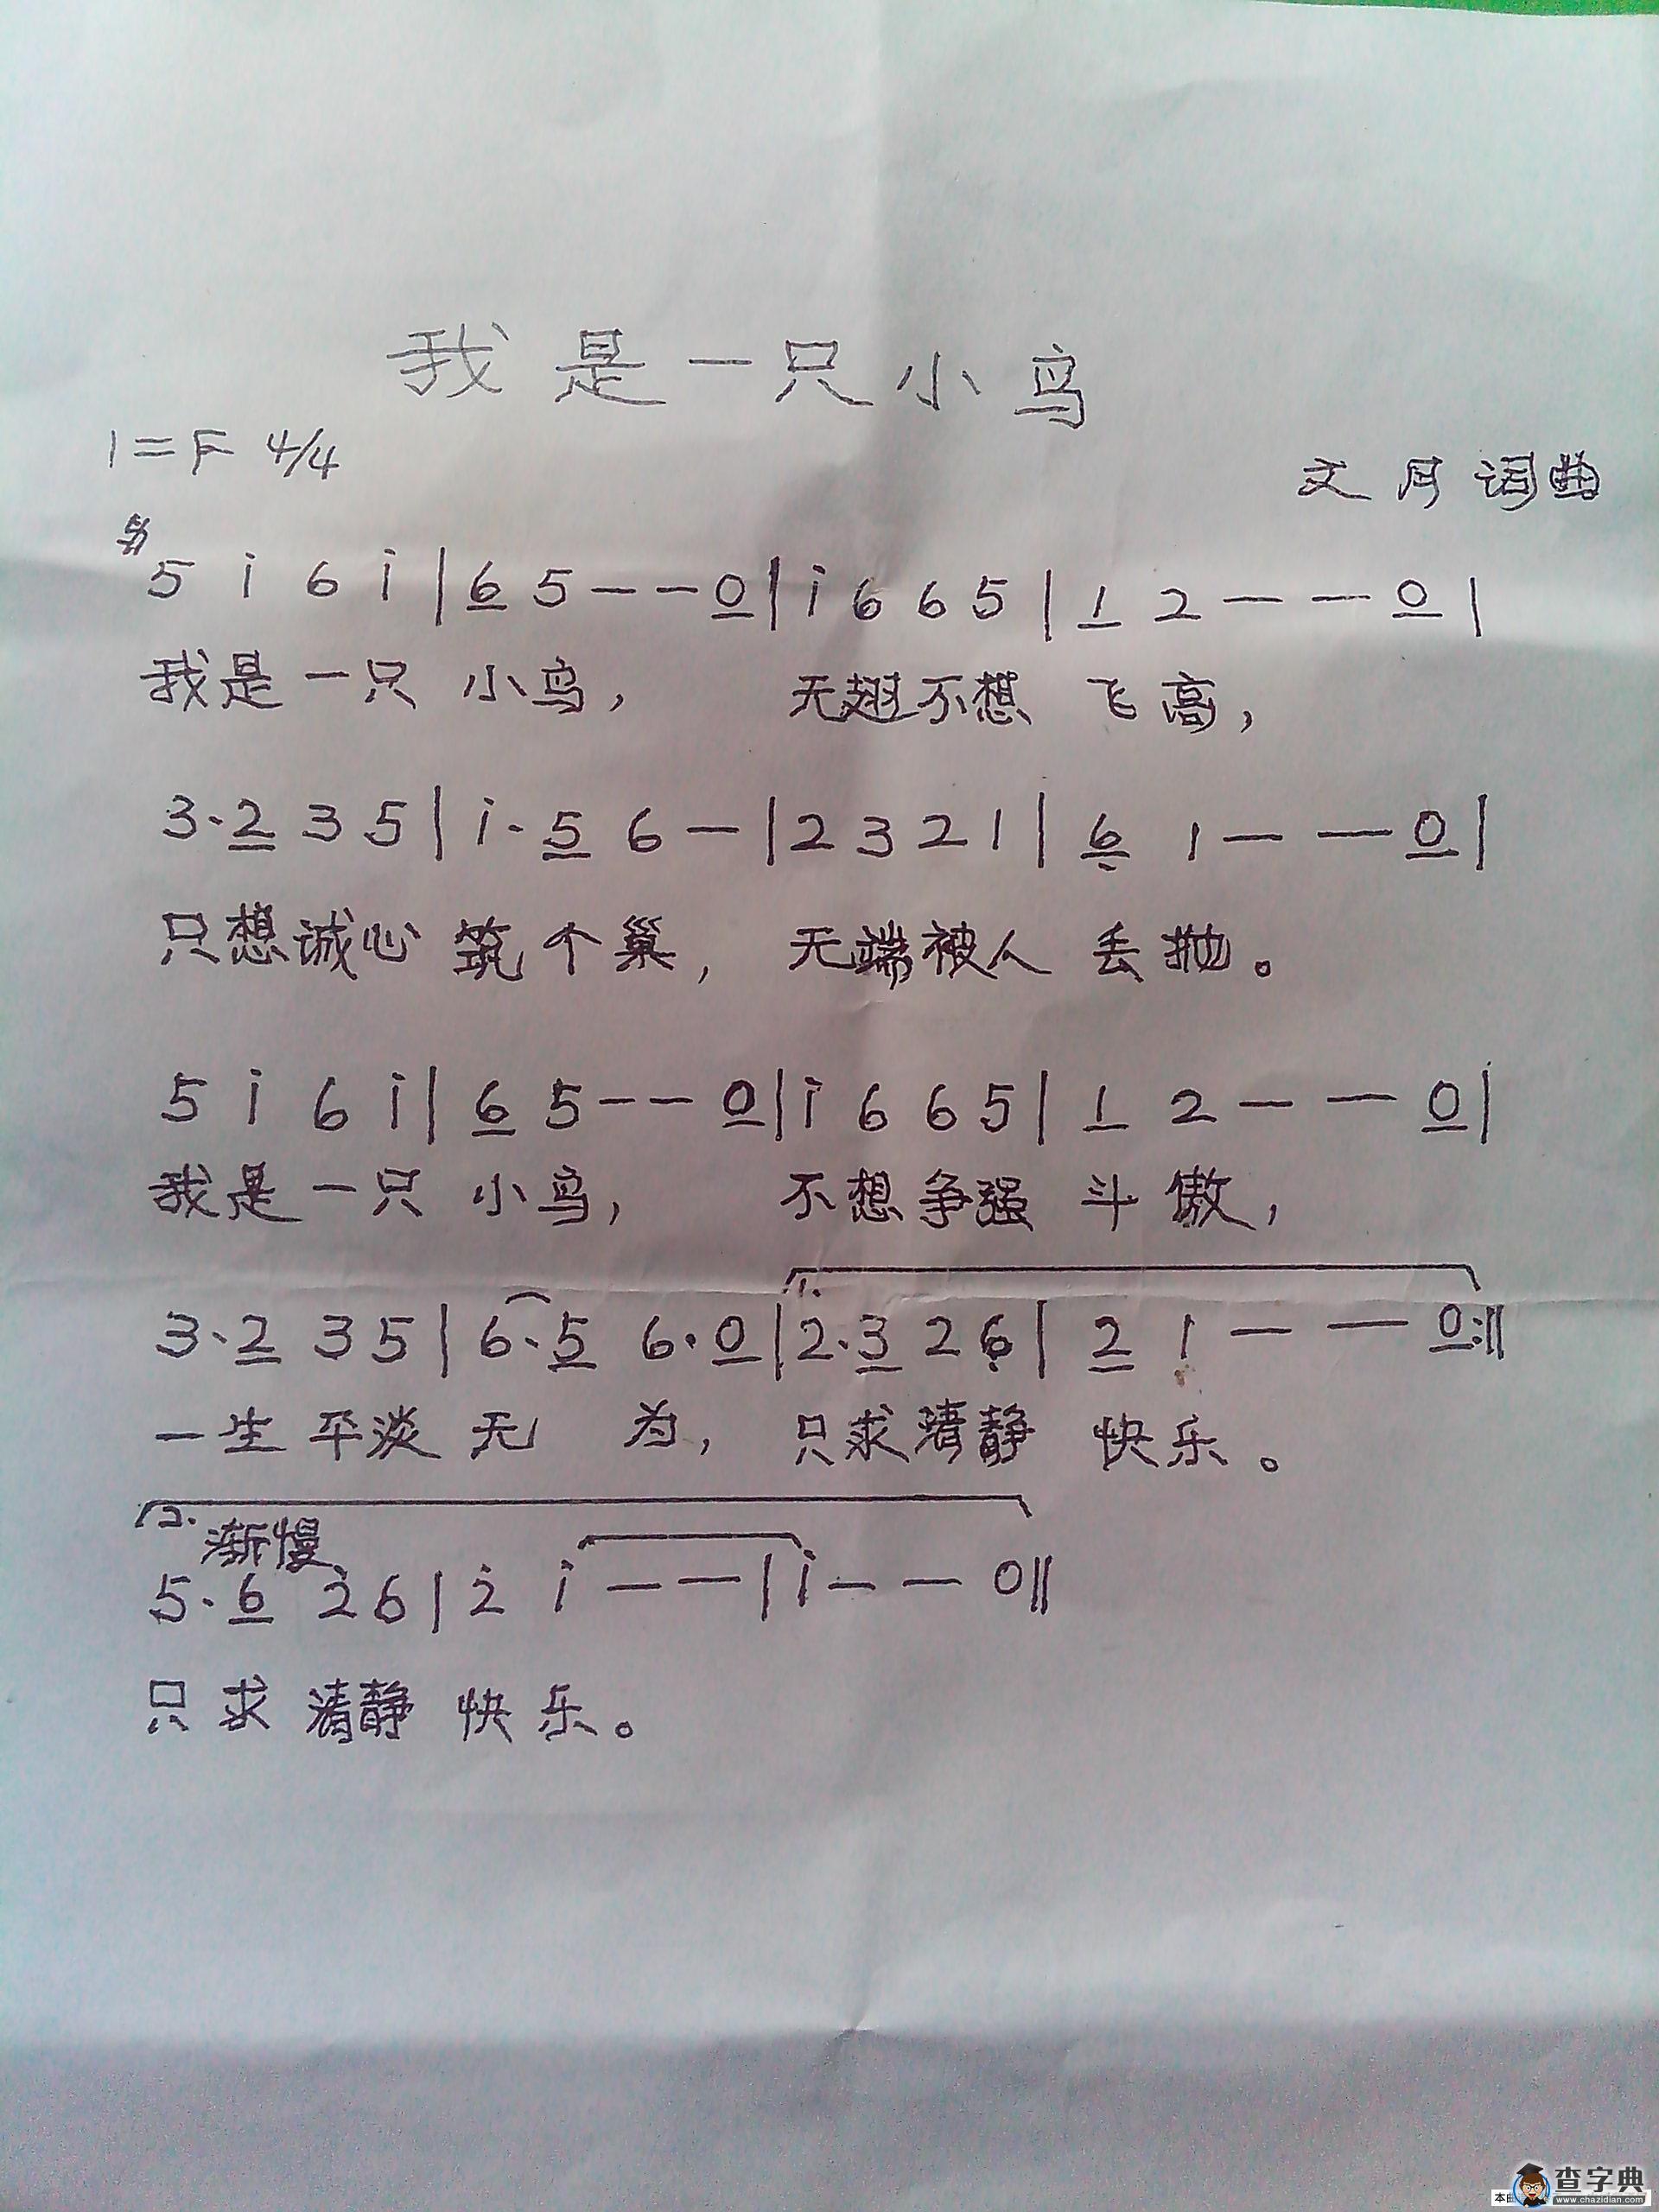 我是一只小鸟
1=F 4/4
文月词曲
5 i 6 i | 6 5 — — 0 | i 6 6 5 | 1 2 — — 0 |
我是一只 小鸟， 无翅不想 飞高，
3·2 3 5 | i·5 6 — | 2 3 2 1 | 6 1 — — 0 |
只想诚心 筑个巢， 无端被人 丢抛。
5 i 6 i | 6 5 — — 0 | i 6 6 5 | 1 2 — — 0 |
我是一只 小鸟， 不想争强 斗傲，
1.
3·2 3 5 | 6·5 6·0 | 2·3 2 6 | 2 1 — — 0 :‖
一生平淡 无 为， 只求清静 快乐。
2. 渐慢
5·6 2 6 | 2 i — — | i — — 0 ‖
只求清静 快乐。
查字典
www.chazidian.com